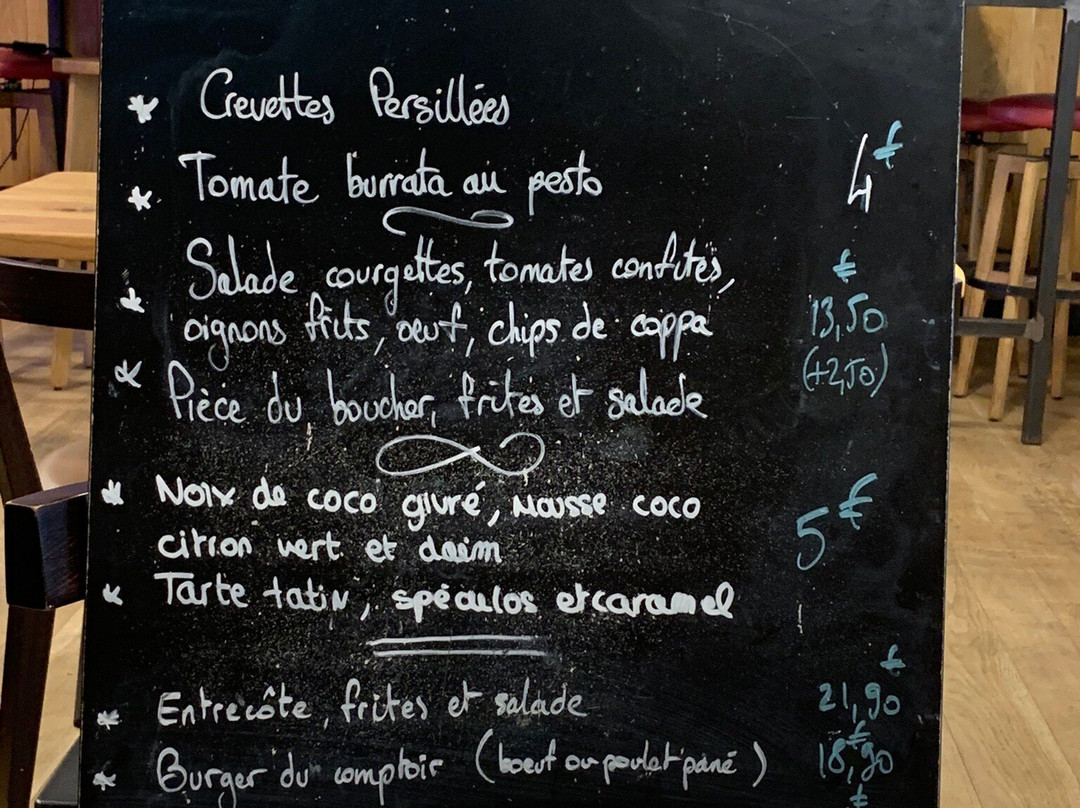 * Crevettes Persillées
* Tomate burrata au pesto 4€
* Salade courgettes, tomates confites,
oignons frits, oeuf, chips de coppa 13,50 €
* Pièce du boucher, frites et salade (+2,50)
* Noix de coco givré, mousse coco
citron vert et daim 5€
* Tarte tatin, spéculos et caramel
* Entrecôte, frites et salade 21,90 €
* Burger du comptoir (boeuf ou poulet pané) 18,90 €
€